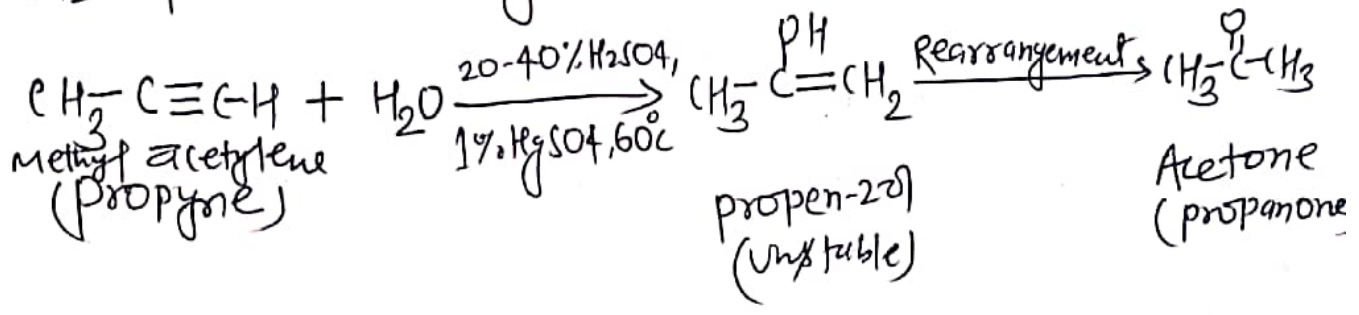 CH₃-C≡C-H + H₂O 20-40% H₂SO₄, 1% HgSO₄, 60°C → CH₃-C(OH)=CH₂ Rearrangement → CH₃-C(=O)-CH₃
Methyl acetylene
(propyne)
propen-2-ol
(unstable)
Acetone
(propanone